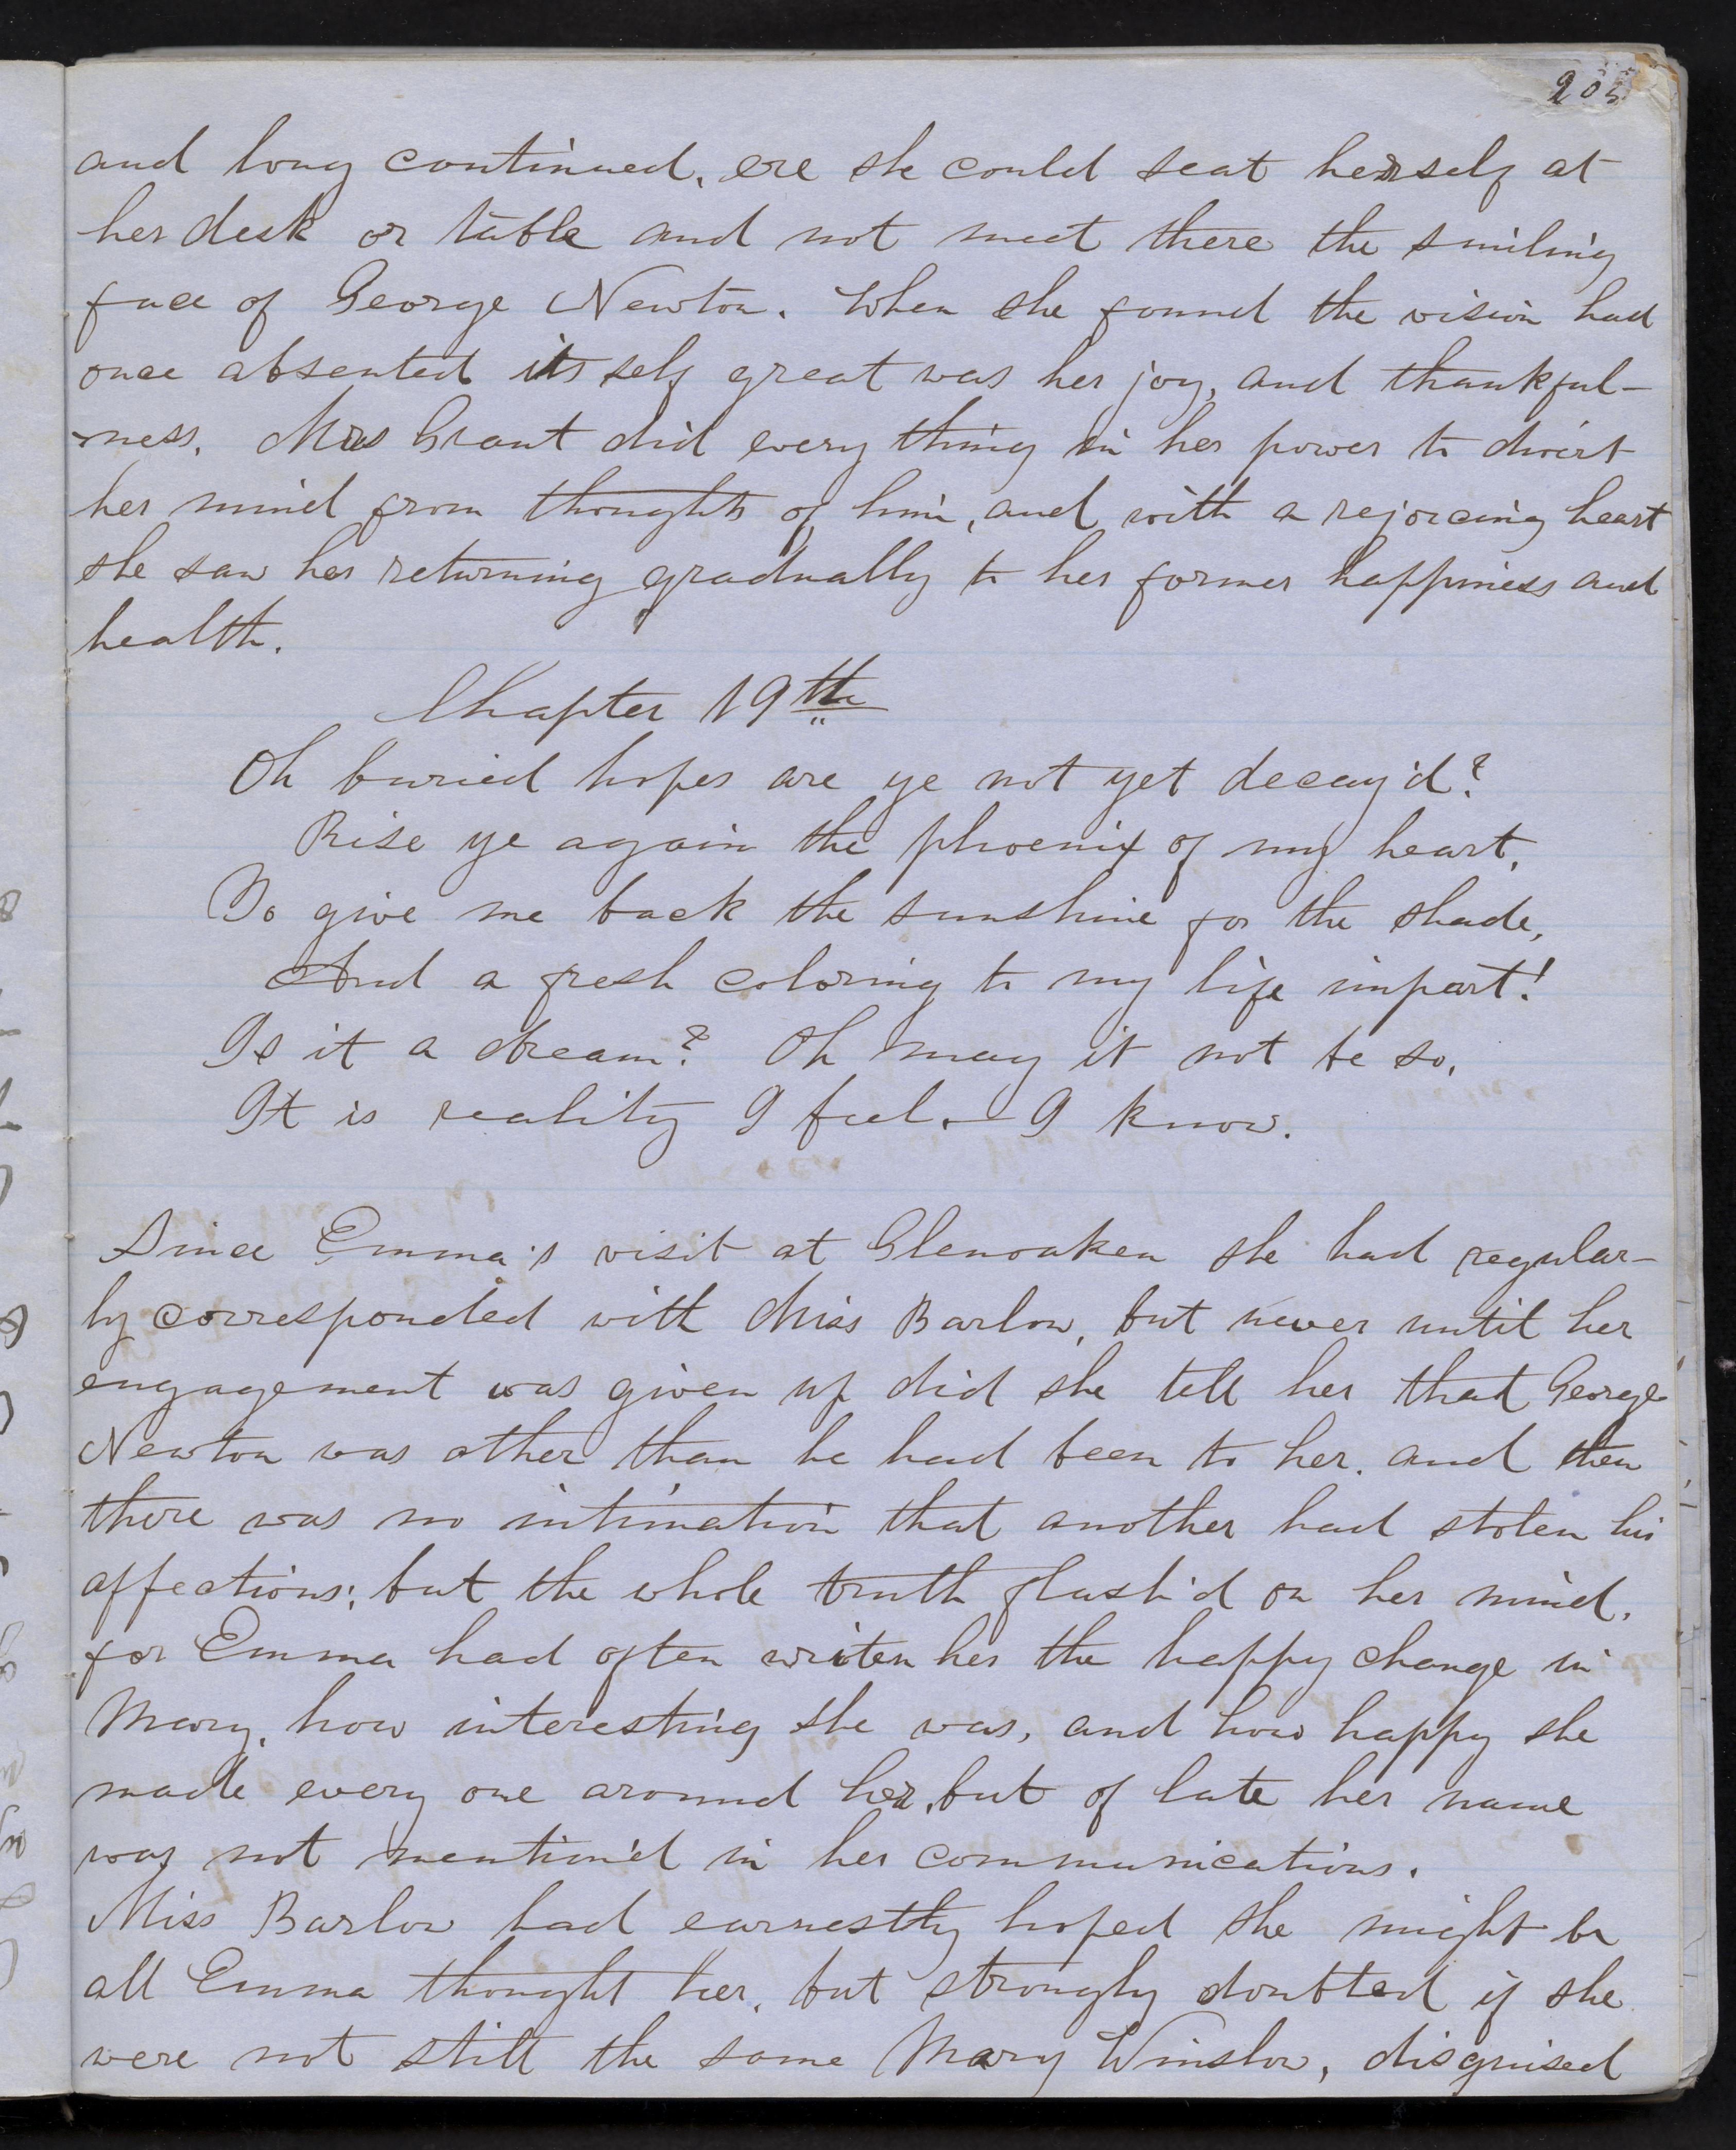 205
and long continued, ere she could seat herself at
her desk or table and not meet there the smiling
face of George Newton. When she found the vision had
once absented itself great was her joy, and thankful-
-ness. Mrs Grant did every thing in her power to divert
her mind from thoughts of him, and with a rejoicing heart
she saw her returning gradually to her former happiness and
health.
Chapter 19th
Oh buried hopes are ye not yet decay'd?
Rise ye again the phoenix of my heart,
To give me back the sunshine for the shade,
And a fresh coloring to my life impart!
Is it a dream? Oh may it not be so,
It is reality I feel.— I know.
Since Emma's visit at Glenoaken she had regular-
ly corresponded with Miss Barlow, but never until her
engagement was given up did she tell her that George
Newton was other than he had been to her, and then
there was no intimation that another had stolen his
affections; but the whole truth flash'd on her mind,
for Emma had often writen her the happy change in
Mary, how interesting she was, and how happy she
made every one around her, but of late her name
was not mention'd in her communications.
Miss Barlow had earnestly hoped she might be
all Emma thought her, but strongly doubted if she
were not still the same Mary Winslow, disguised